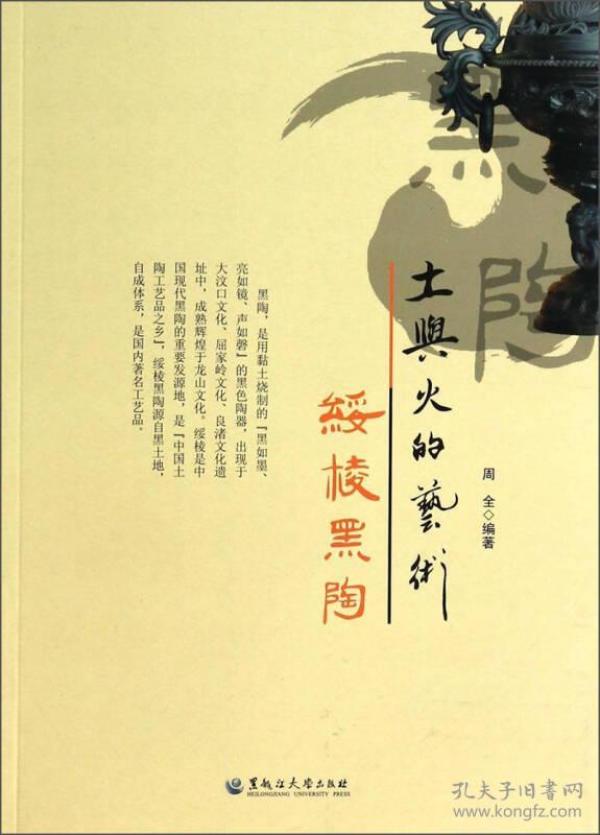 黑陶
土與火的藝術
綏棱黑陶
周 全◇编著
黑陶，是用黏土烧制的『黑如墨、
亮如镜、声如磬』的黑色陶器，出现于
大汶口文化、屈家岭文化、良渚文化遗
址中，成熟辉煌于龙山文化。绥棱是中
国现代黑陶的重要发源地，是『中国土
陶工艺品之乡』，绥棱黑陶源自黑土地，
自成体系，是国内著名工艺品。
黑龍江大學出版社
HEILONGJIANG UNIVERSITY PRESS
孔夫子旧书网
www.kongfz.com